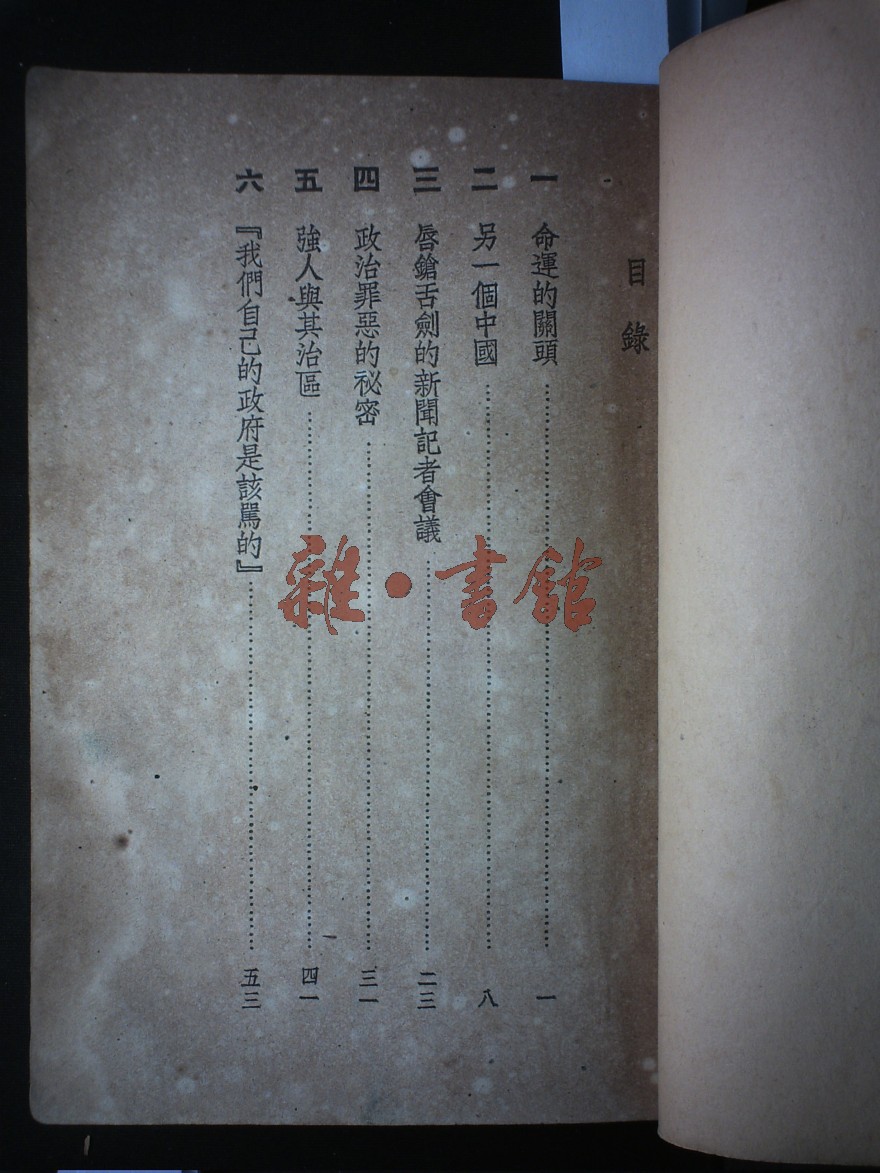 目錄
一 命運的關頭 一
二 另一個中國 八
三 唇鎗舌劍的新聞記者會議 二三
四 政治罪惡的祕密 三一
五 強人與其治區 四一
六 『我們自己的政府是該罵的』 五三
雜·書館